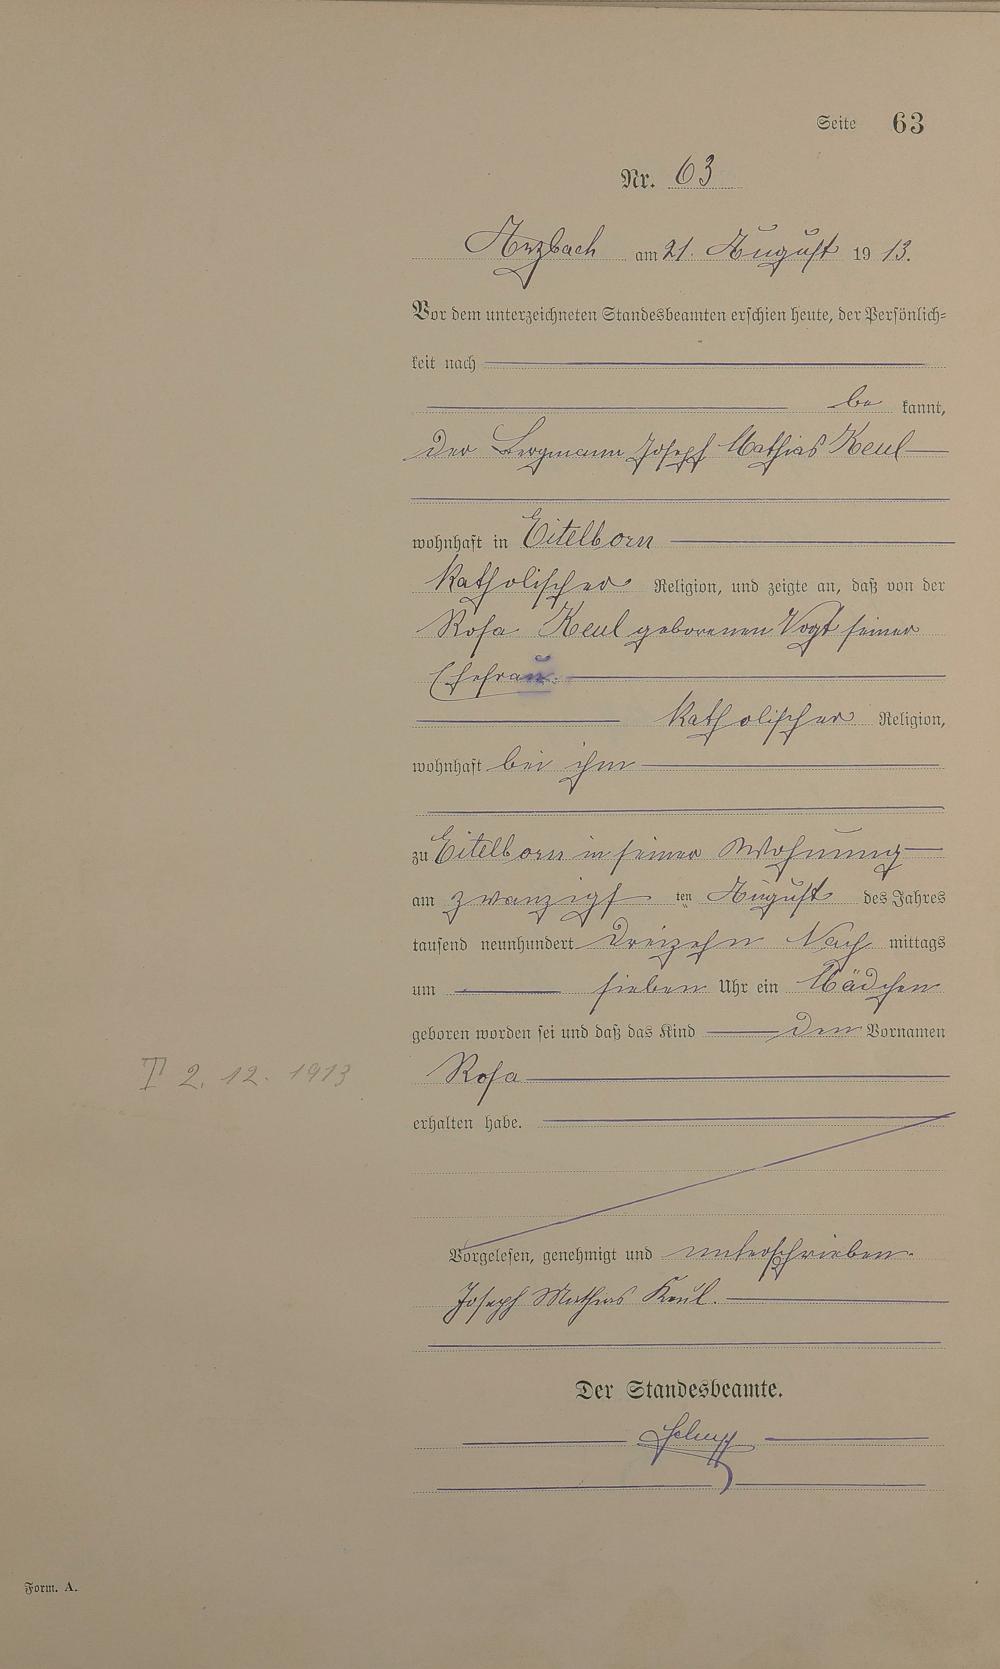 Seite 63
Nr. 63
Arzbach am 21. August 1913.
Vor dem unterzeichneten Standesbeamten erschien heute, der Persönlich=
keit nach
be kannt,
der Bergmann Joseph Mathias Keul
wohnhaft in Eitelborn
katholischer Religion, und zeigte an, daß von der
Rosa Keul geborenen Vogt seiner
Ehefrau.
katholischer Religion,
wohnhaft bei ihm
zu Eitelborn in seiner Wohnung
am zwanzigsten August des Jahres
tausend neunhundert dreizehn Nachmittags
um sieben Uhr ein Mädchen
geboren worden sei und daß das Kind den Vornamen
T 2. 12. 1913
Rosa
erhalten habe.
Vorgelesen, genehmigt und unterschrieben.
Joseph Mathias Keul.
Der Standesbeamte.
Form. A.